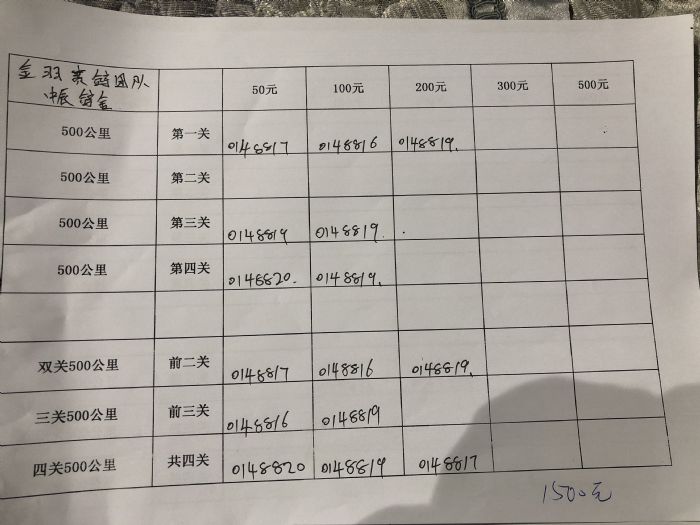 金羽赛鸽团队
50元 100元 200元 300元 500元
500公里 第一关 0148817 0148816 0148819.
500公里 第二关
500公里 第三关 0148819 0148819.
500公里 第四关 0148820. 0148819.
双关500公里 前二关 0148817 0148816 0148819.
三关500公里 前三关 0148816 0148819
四关500公里 共四关 0148820 0148819 0148817
1500元